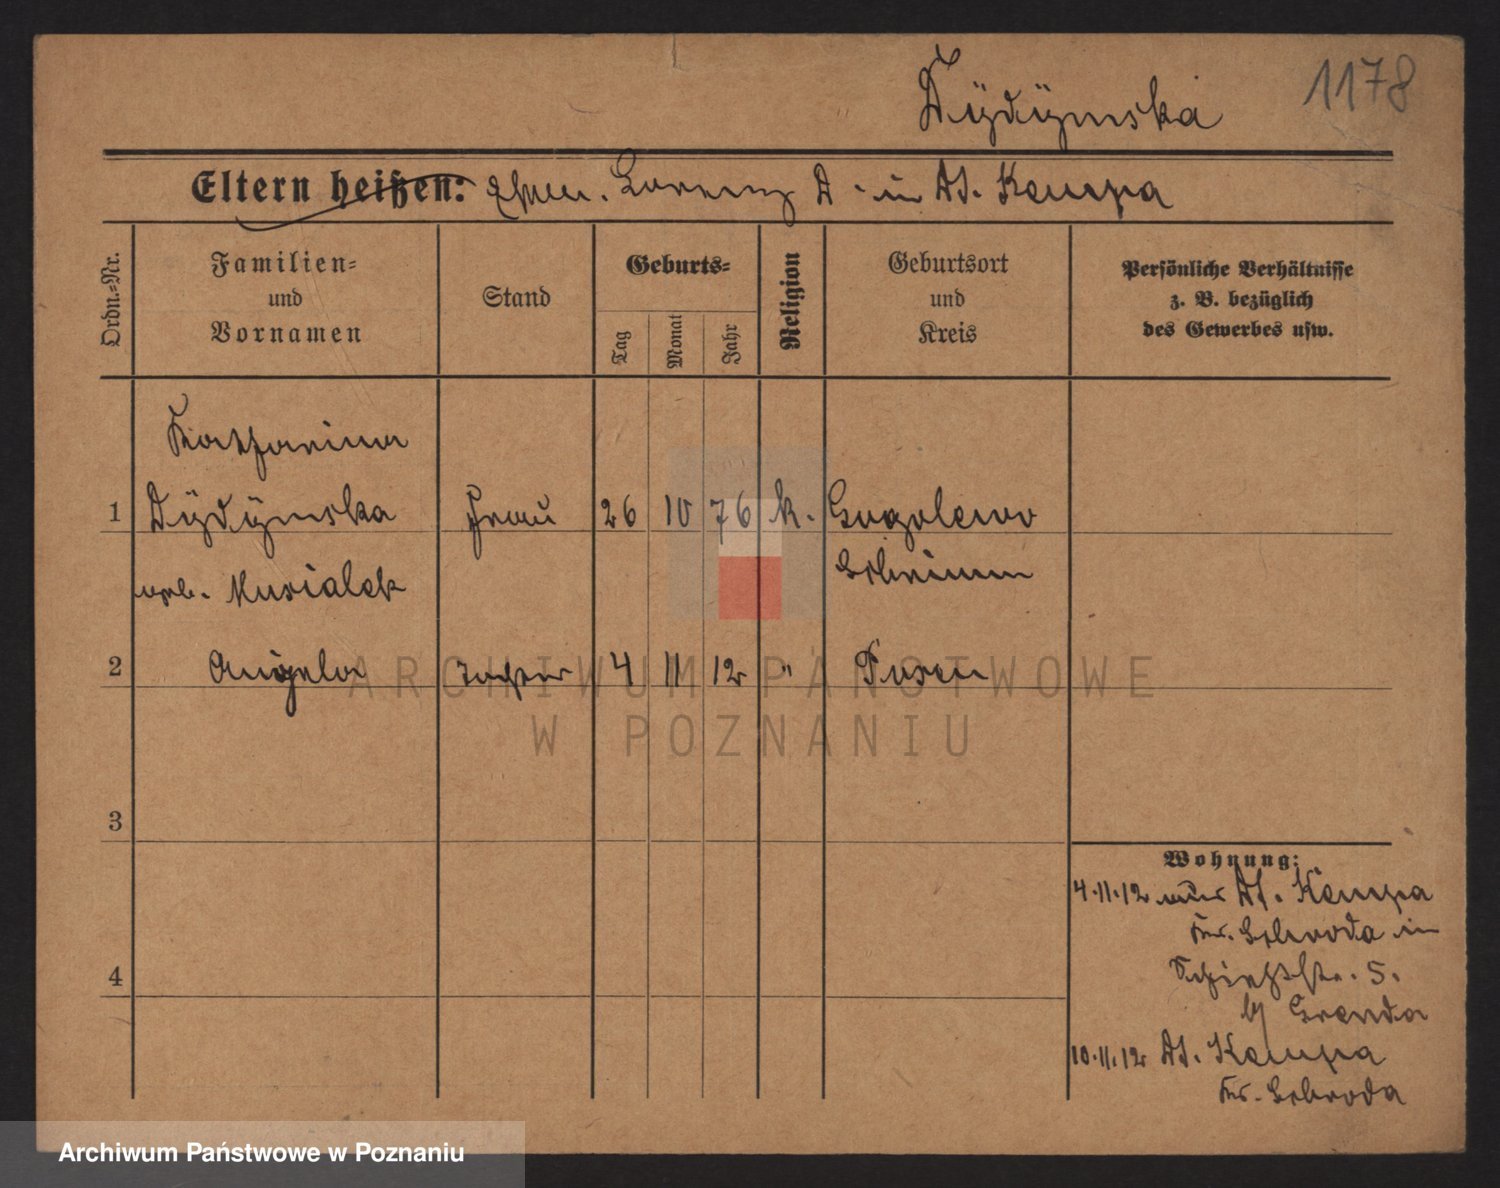 Dÿdÿmska
1178
Eltern heißen: Ehem. Lorenz D. in Dt. Kempa
Ordn.-Nr.
Familien- und Vornamen
Stand
Geburts-
Tag
Monat
Jahr
Religion
Geburtsort und Kreis
Persönliche Verhältnisse
z. B. bezüglich
des Gewerbes usw.
Katharina
1 Dÿdÿmska Frau 26 10 76 k. Gogolewo
geb. Musialek Schrimm
2 Angela Tochter 4 11 12 " Posen
3
4
Wohnung:
4.11.12 aus Dt. Kempa
Kr. Schroda in
Schießstr. 5.
b/ Grenda
10.11.12 Dt. Kempa
Kr. Schroda
ARCHIWUM PAŃSTWOWE
W POZNANIU
Archiwum Państwowe w Poznaniu